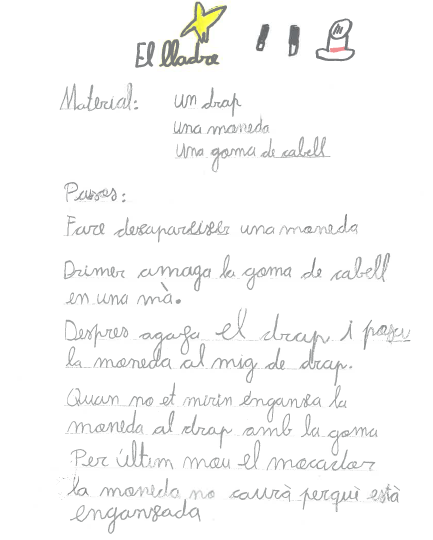 El lladre
Material: un drap
una moneda
una goma de cabell
Passos:
Fare desapareixer una moneda
Primer amaga la goma de cabell
en una mà.
Despres agafa el drap i posa
la moneda al mig de drap.
Quan no et mirin engansa la
moneda al drap amb la goma
Per últim mou el mocador
la moneda no caurà perquè està
engansada